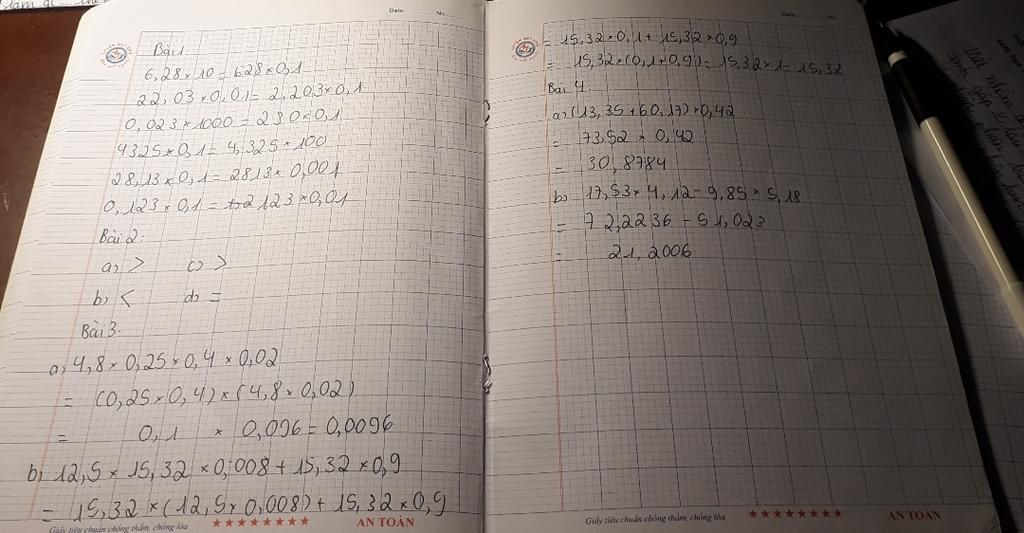 Date No
Bài 1
6,28 × 10 = 628 × 0,1
22,03 × 0,01 = 2,203 × 0,1
0,023 × 1000 = 230 × 0,1
4325 × 0,1 = 4,325 × 100
28,13 × 0,1 = 2813 × 0,001
0,123 × 0,1 = 2123 × 0,01
Bài 2:
a) > c) >
b) < d) =
Bài 3:
a) 4,8 × 0,25 × 0,4 × 0,02
= (0,25 × 0,4) × (4,8 × 0,02)
= 0,1 × 0,096 = 0,0096
b) 12,5 × 15,32 × 0,008 + 15,32 × 0,9
= 15,32 × (12,5 × 0,008) + 15,32 × 0,9
Giấy tiêu chuẩn chống thấm, chống lóa AN TOÀN
Date No
= 15,32 × 0,1 + 15,32 × 0,9
= 15,32 × (0,1 + 0,9) = 15,32 × 1 = 15,32
Bài 4:
a) (13,35 + 60,17) × 0,42
= 73,52 × 0,42
= 30,8784
b) 17,53 × 4,12 - 9,85 × 5,18
= 72,2236 - 51,023
= 21,2006
Giấy tiêu chuẩn chống thấm, chống lóa AN TOÀN